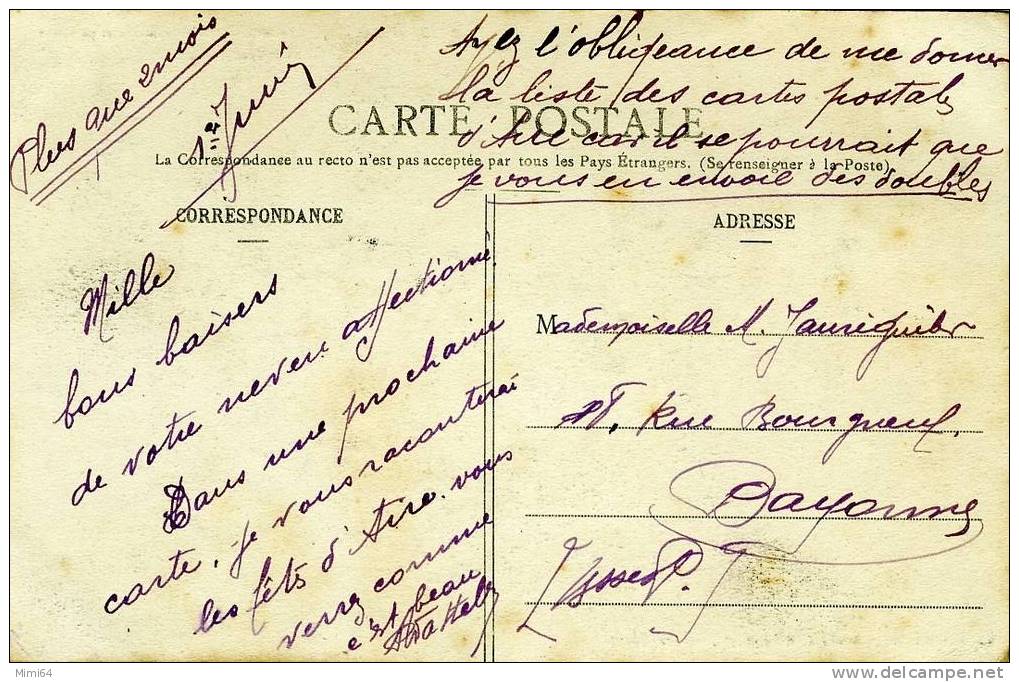 Plus que 2 mois
1er Juin
Ayez l'obligeance de me donner
la liste des cartes postales
d'Aire car il se pourrait que
je vous en envoie des doubles
CARTE POSTALE
La Correspondance au recto n'est pas acceptée par tous les Pays Étrangers. (Se renseigner à la Poste)
CORRESPONDANCE
Mille
bons baisers
de votre neveu affectionné.
Dans une prochaine
carte, je vous raconterai
les fêtes d'Aire. vous
verrez comme
c'est beau
ADRESSE
Mademoiselle M. Jauréguiber
Rue Bourgneuf.
Bayonne
Mimi64
www.delcampe.net